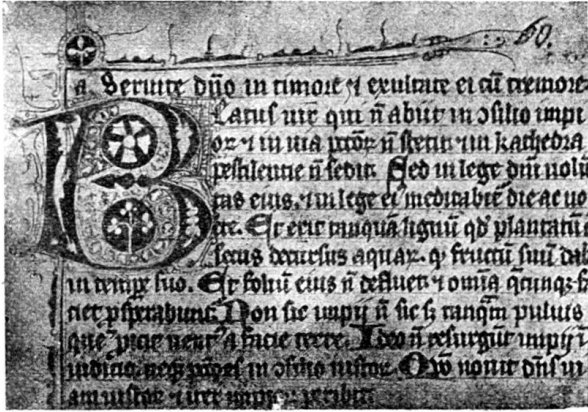 60.
a. Seruite dño in timore ⁊ exultate ei cū tremore
Beatus uir qui ñ abiit in ɔsilio impi
oꝝ ⁊ in uia pctoꝝ ñ stetit ⁊ in kathedra
pestilentie ñ sedit. Sed in lege dñi uolū
tas eius, ⁊ in lege eiꝰ meditabit̄ die ac no
cte. Et erit tanquā lignū qđ plantatū ē
secus decursus aquaꝝ. qđ fructū suū dab
in tempe suo. Et foliū eius ñ defluet ⁊ omīa qcunqꝫ fa
ciet psperabunt. Non sic impij ñ sic sꝫ tanqm puluis
quē picit uentꝰ a facie terre. Ideo ñ resurgūt impij ī
iudicio, neqꝫ pctores in ɔsilio iustoꝝ. Qm̄ nouit dñs ui
am iustoꝝ ⁊ iter impioꝝ peribit